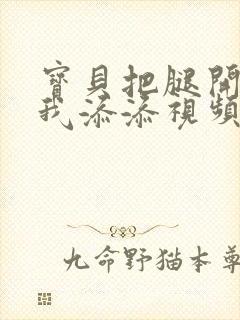 寶貝把腿開
我添添視頻
九命野猫本尊